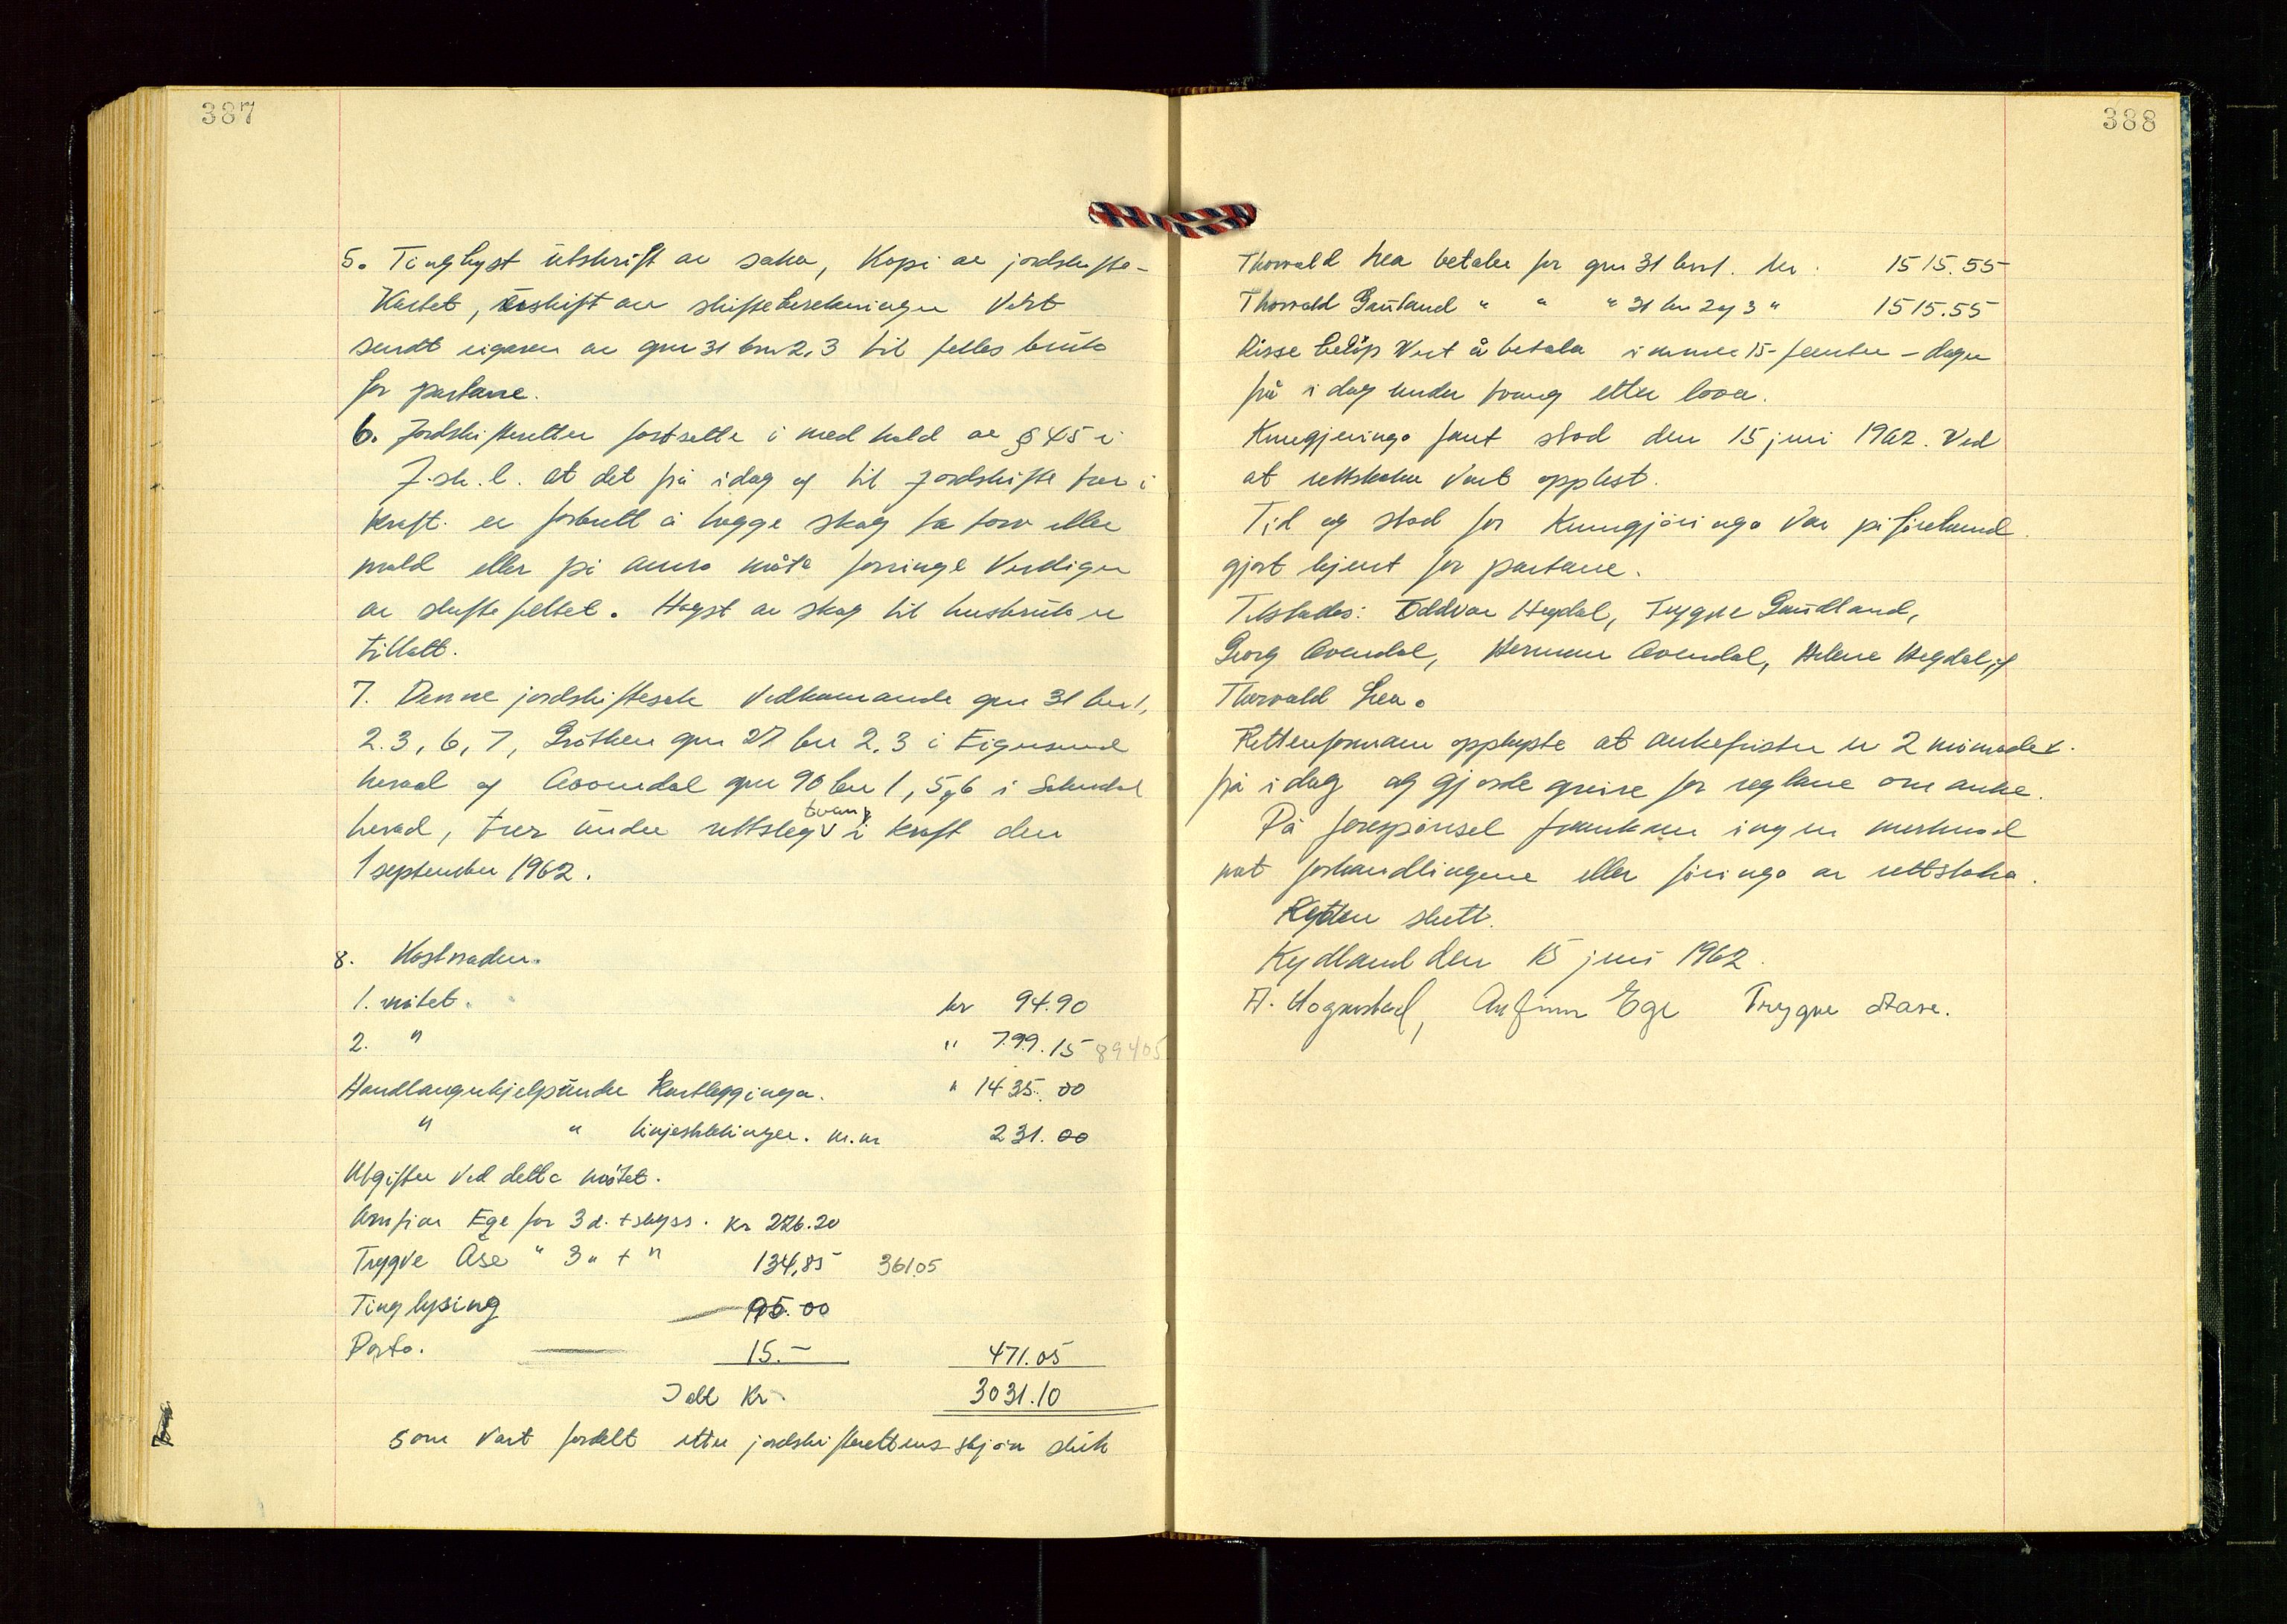 387
5. Tinglyst utskrift av saka, Kopi av jordskifte-
Kartet, avskrift av skifteberekningen vert
sendt eigaren av gnr 31 bnr 2,3 til felles bruk
for partane.
6. Jordskifteretten fastsette i medhald av § 45 i
J.sk.l. at det frå idag og til jordskifte trer i
kraft er forbudt å hogge skog ta torv eller
mold eller på anna måte forringe Verdigen
av skiftefeltet. Hogst av skog til husbruk er
tillatt.
7. Denne jordskiftesak Vedkomande gnr 31 bnr 1,
2.3, 6, 7, gnr 27 bnr 2,3 i Eigersund
herad og Aavendal gnr 90 bnr 1, 5 og 6 i Sokndal
herad, trer under rettsleg tvang i kraft den
1 september 1962.
8. Kostnaden.
1. møtet. kr 94.90
2. " " 799.15 894 05
Handlangerhjelp under Kartlegginga. " 1435.00
" " linjestikkingen. m.m 231.00
Utgifter ved dette møtet.
Arnfinn Ege for 3 d. + skyss. Kr 226.20
Trygve Åse " 3 " + " 134,85 361.05
Tinglysing 95.00
Porto. 15.- 471.05
I alt Kr. 3031.10
som vart fordelt etter jordskifterettens skjøn slik
388
Thorvald Lea betaler for gnr 31 bnr 1. kr. 1515.55
Thorvald Gautland " " " 31 bnr 2 og 3 " 1515.55
Disse beløp Vert å betala innen 15-femten-dagar
frå i dag under tvang etter lova.
Kunngjeringa fant stad den 15 juni 1962. Ved
at rettsboka vart opplest.
Tid og stad for Kunngjøringa var på førehand
gjort kjent for partane.
Tilstades: Oddvar Hegdal, Trygve Gautland,
Georg Avendal, Herman Avendal, Helene Hegdal, og
Thorvald Lea.
Rettenformann opplyste at ankefristen er 2 månader
frå i dag og gjorde greie for reglane om anke.
På forespørsel framkom ingen merknad
mot forhandlingene eller føringa av rettsboka.
Retten slutt.
Kydland den 15 juni 1962.
A. Hognestad, Arnfinn Ege Trygve Aase.